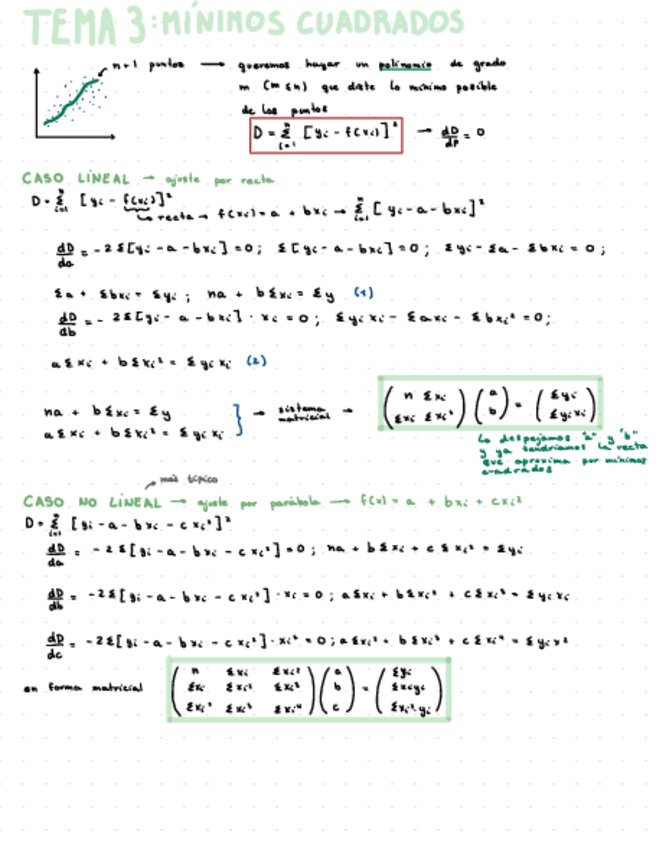 TEMA 3: MÍNIMOS CUADRADOS
n+1 puntos → queremos hayar un polinomio de grado
m (m≤n) que diste lo mínimo posible
de los puntos
D = Σⁿᵢ₌₁ [yi - f(xi)]² → dD/dP = 0
CASO LINEAL → ajuste por recta
D = Σⁿᵢ₌₁ [yi - f(xi)]²
↳ recta → f(xi) = a + bxi → Σⁿᵢ₌₁ [yi - a - bxi]²
dD/da = -2Σ[yi - a - bxi] = 0; Σ[yi - a - bxi] = 0; Σyi - Σa - Σbxi = 0;
Σa + Σbxi = Σyi; na + bΣxi = Σy (1)
dD/db = -2Σ[yi - a - bxi] · xi = 0; Σyixi - Σaxi - Σbxi² = 0;
aΣxi + bΣxi² = Σyixi (2)
na + bΣxi = Σy
aΣxi + bΣxi² = Σyixi
} → sistema matricial →
( n Σxi ) ( a ) = ( Σyi )
( Σxi Σxi² ) ( b ) ( Σyixi )
↳ despejamos "a" y "b"
y ya tendríamos la recta
que aproxima por mínimos
cuadrados
más típico
CASO NO LINEAL → ajuste por parábola → f(x) = a + bxi + cxi²
D = Σⁿᵢ₌₁ [yi - a - bxi - cxi²]²
dD/da = -2Σ[yi - a - bxi - cxi²] = 0; na + bΣxi + cΣxi² = Σyi
dD/db = -2Σ[yi - a - bxi - cxi²] · xi = 0; aΣxi + bΣxi² + cΣxi³ = Σyixi
dD/dc = -2Σ[yi - a - bxi - cxi²] · xi² = 0; aΣxi² + bΣxi³ + cΣxi⁴ = Σyix²
en forma matricial
( n Σxi Σxi² ) ( a ) = ( Σyi )
( Σxi Σxi² Σxi³ ) ( b ) ( Σxiyi )
( Σxi² Σxi³ Σxi⁴ ) ( c ) ( Σxi²yi )